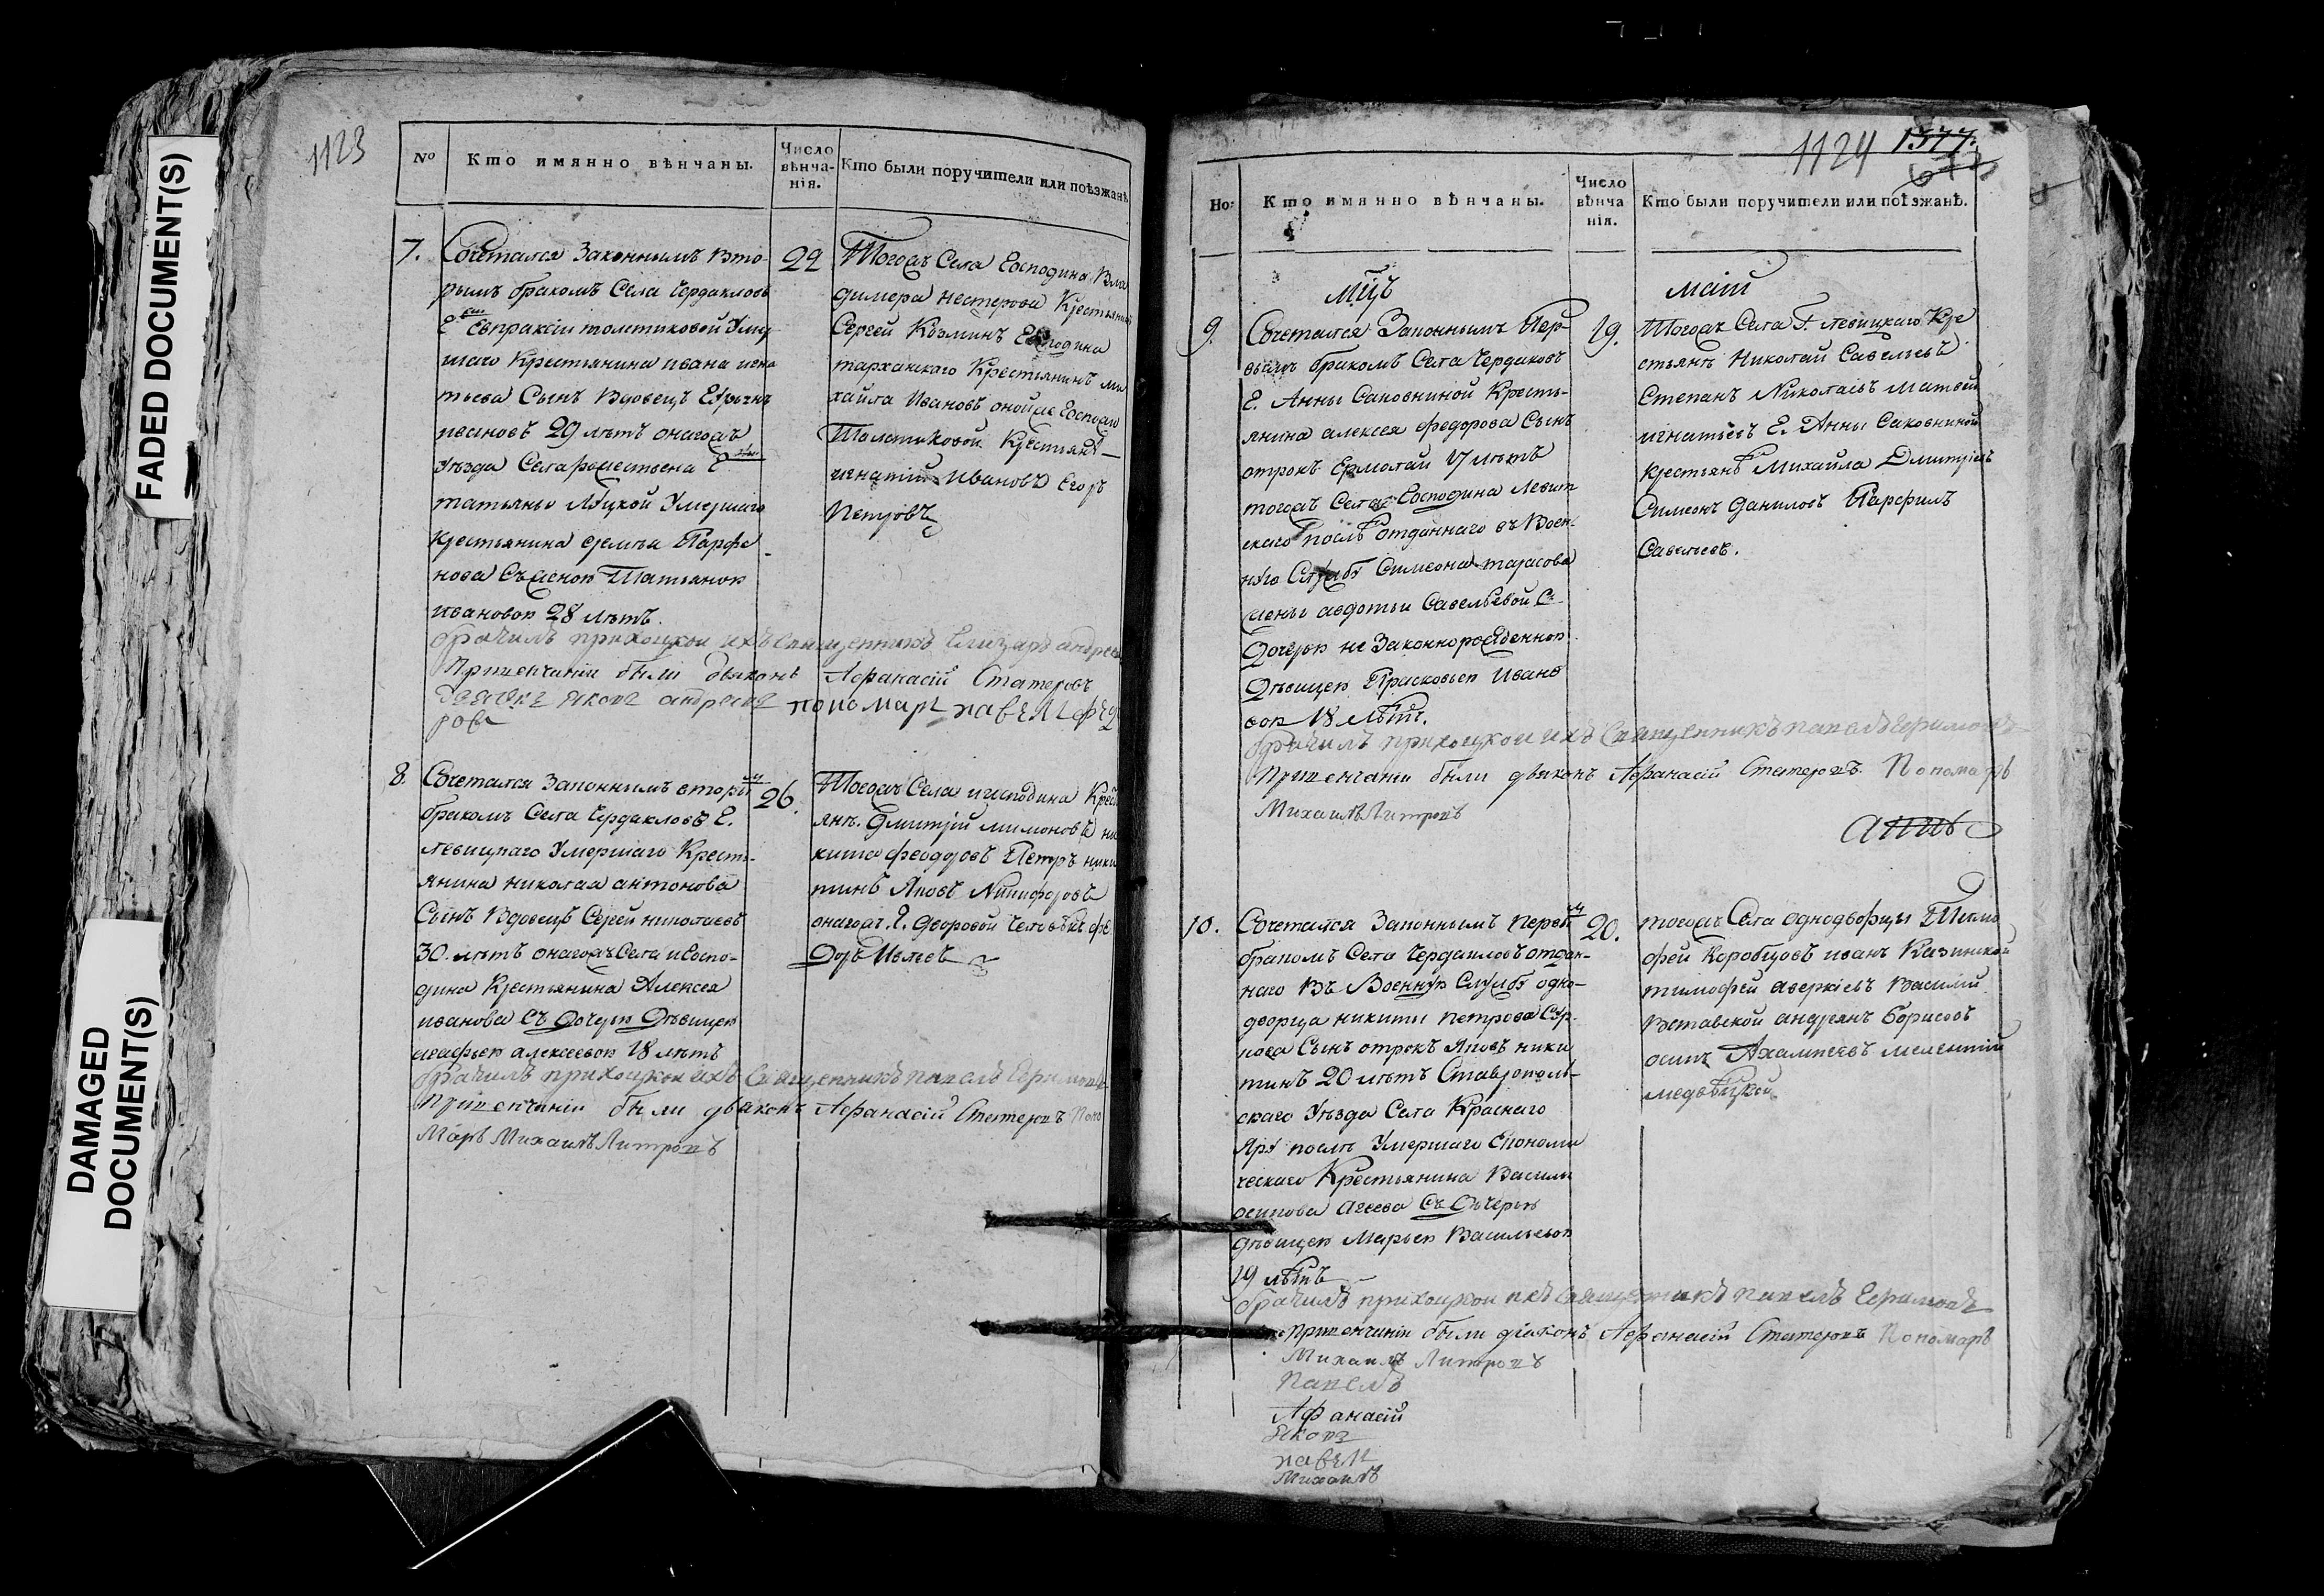 FADED DOCUMENT(S)
DAMAGED DOCUMENT(S)
1123
№
Кто имянно вѣнчаны.
Число вѣнча-нія.
Кто были поручители или поѣзжанѣ
7.
Сочетался Законнымъ вто-
рымъ бракомъ Села Чердакловъ
Евпраксіи толстиковой Умер
шаго Крестьянина ивана игна
тьева Сынъ Вдовецъ
ивановъ 29 лѣтъ онагожъ
уѣзда Села рожествена
татьяны Умершаго
Крестьянина Парфе
нова Съ женою Татьяною
ивановою 28 лѣтъ.
22
Тогожъ Села Господина Вла
димера нестерова Крестьянинъ
Сергей Козминъ Господина
тарханскаго Крестьянинъ ми
хайла Ивановъ оной же Госпожи
Толстиковой Крестьянѣ
игнатій Ивановъ Егоръ
Петровъ
брачилъ приходской ихъ священникъ Елизаръ андреевъ
При венчаніи были дьяконъ Афанасій Статеровъ
Яковъ андреевъ пономарь павелъ федо
ровъ
8.
Сочетался Законнымъ вторымъ
бракомъ Села Чердакловъ Г.
левицкаго Умершаго Кресть-
янина николая антонова
Сынъ Вдовецъ Сергей николаевъ
30 лѣтъ онагожъ Села и Госпо-
дина Крестьянина Алексея
иванова Съ дочерью дѣвицею
агафьею алексеевою 18 лѣтъ
26.
Тогожъ Села и господина Крест
янѣ Дмитрій ни
кита феодоровъ Петръ ники
тинъ Яковъ Никифоровъ
онагожъ Г. дворовой человѣкъ фе
доръ Ивлевъ
брачилъ приходской ихъ священникъ павелъ Ефимовъ
При венчаніи были дьяконъ Афанасій Статеровъ Поно
марь Михаилъ Питровъ
1124
1377.
Но:
Кто имянно вѣнчаны.
Число вѣнча нія.
Кто были поручители или поѣзжанѣ.
Мцъ
маій
9.
Сочетался Законнымъ Пер-
вымъ бракомъ Села Чердаковъ
Г. Анны Саковниной Кресть-
янина алексея федорова Сынъ
отрокъ Ермолай 17 лѣтъ
тогожъ Села Господина Левит
скаго послѣ отданнаго въ Воен-
ную Службу Симеона тарасова
жены авдотьи Савельевой Съ
дочерью не Законнорожденною
дѣвицею Прасковьею Ивано
вою 18 лѣтъ.
19.
Тогожъ Села Г. левицкаго Кре
стьянѣ Николай Савельевъ
Степанъ Николаевъ Матвей
игнатьевъ Г. Анны Саковниной
крестьянѣ Михайла Дмитріевъ
Симеонъ Даниловъ Парфилъ
Савельевъ.
брачилъ приходской ихъ священникъ павелъ Ефимовъ
При венчаніи были дьяконъ Афанасій Статеровъ Пономарь
Михаилъ Питровъ
10.
Сочетался Законнымъ первымъ
бракомъ Села Чердакловъ отдан-
наго въ Военную Службу одно-
дворца никиты петрова Сур
кова Сынъ отрокъ Яковъ ники
тинъ 20 лѣтъ Ставрополь-
скаго Уѣзда Села Краснаго
Яру послѣ Умершаго Економи
ческаго Крестьянина Василья
осипова агеева Съ дочерью
дѣвицею Марьею Васильевою
19 лѣтъ
20.
тогожъ Села однодворцы Тимо
фей Коробцовъ иванъ Казинской
тимофей аверкіевъ Василій
андреянъ Борисовъ
осипъ мелентій
медвѣцкой
брачилъ приходской ихъ священникъ павелъ Ефимовъ
При венчаніи были діаконъ Афанасій Статеровъ Пономарь
Михаилъ Питровъ
Павелъ
Афанасій
Яковъ
павелъ
Михаилъ